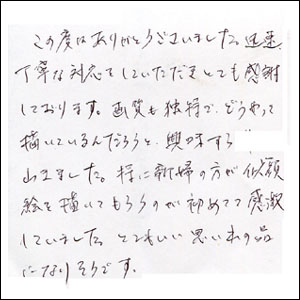 この度はありがとうございました。迅速
丁寧な対応をしていただきとても感謝
しております。画質も独特で、どうやって
描いているんだろうと、興味すら
出ました。様に新婦の方が似顔
絵を描いてもらうのが初めてで感激
していました。とてもいい思い出の品
になりそうです。